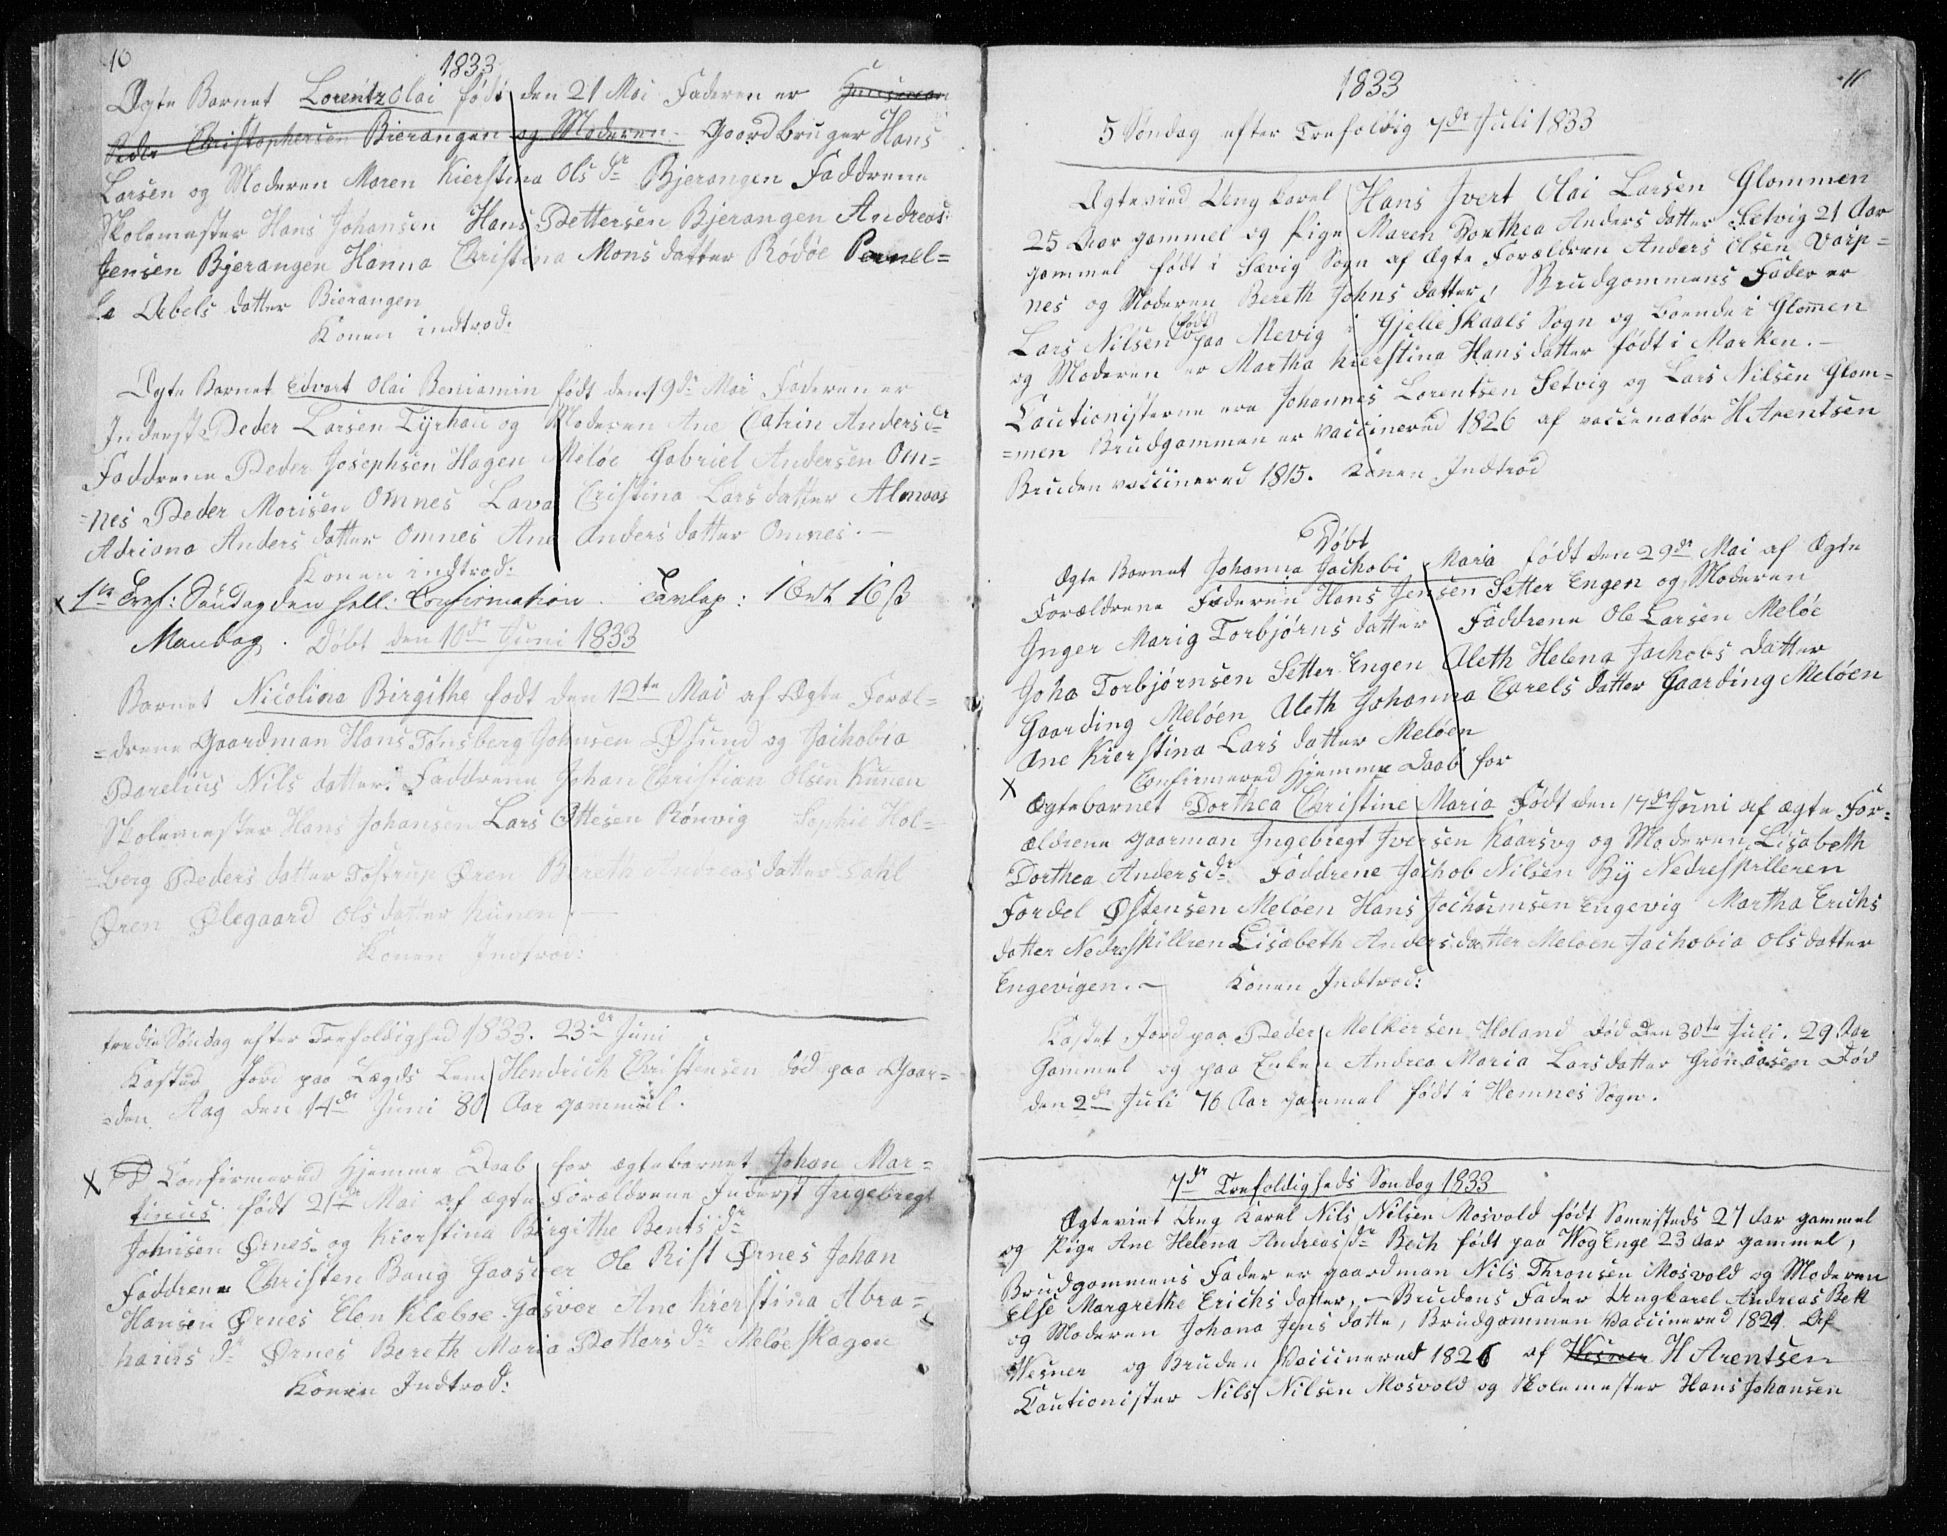 10
1833
Ægte Barnet Lorentz Olai født den 21 Mai Faderen er Huusmand
Peder Christophersen Bierangen og Moderen Gaardbruger Hans
Larsen og Moderen Maren Kierstina Ols dr Bjerangen Faddrene
Skolemester Hans Johansen Hans Pettersen Bjerangen Andreas
Jensen Bjerangen Hanna Christina Mons datter Rödöe Pernel=
le Abels datter Bierangen
Konen indtrod.
Ægte Barnet Edvart Olai Beniamin født den 19de Mai Faderen er
Inderst Peder Larsen Tyrhau og Moderen Ane Catrin Anders dr
Faddrene Peder Josephsen Hagen Meløe Gabriel Andersen Om=
=nes Peder Morisen Omnes Lava Cristina Lars datter Almaas
Adriana Anders datter Omnes Ane Anders datter Omnes. —
Konen indtrod:
x 1ste Tref: Søndag den hell: Confirmation. Tavlep: 1 Ort 16 ß
Mandag. Døbt den 10de Juni 1833
Barnet Nicolina Birgithe født den 12te Mai af Ægte Foræl=
=drene Gaardman Hans Tønsberg Johnsen Øsund og Jachobia
Parelius Nils datter. Faddrene Johan Christian Olsen Kunen
Skolemester Hans Johansen Lars Ottesen Rönvig Sophie Hol=
berg Peders datter Øren Bereth Andreas datter Dahl
Øren Ølegaard Ols datter Kunen. —
Konen Indtrod:
tredie Søndag efter Trefoldighed 1833. 23de Juni
Kasted Jord paa Lægds Lem Hendrich Christensen død paa Gaar=
=den Aag den 14de Juni 80 Aar gammel.
x Confirmered Hjemme Daab for ægtebarnet Johan Mar=
tinus født 21de Mai af ægte Forældrene Inderst Ingebregt
Johnsen Ørnes og Kierstina Birgithe Bents dr
Faddrene Christen Bang Gaasvær Ole Rist Ørnes Johan
Hansen Ørnes Elen Klæboe Gasver Ane Kierstina Abra=
hams dr Ørnes Bereth Maria Petters dr Meløeskagen
Konen Indtrod:
11
1833
5 Søndag efter Trefoldig 7de Juli 1833
Ægtevied Ung Karel Hans Ivert Olai Larsen Glommen
25 Aar gammel og Pige Maren Dorthea Anders datter Setvig 21 Aar
gammel født i Sævig Sogn af Ægte Forældren Anders Olsen Varp=
nes og Moderen Bereth Johns datter, Brudgommens Fader er
Lars Nilsen født paa Nevig i Gjelleskaals Sogn og boende i Glomen
og Moderen er Martha Kierstina Hans datter født i Marken. —
Cautionisterne ere Johannes Lorentsen Setvig og Lars Nilsen Glom=
=men Brudgommen er vaccinered 1826 af vaccenatør H Arentsen
Bruden vaccinered 1815. Konen Indtrod
Døbt
Ægte Barnet Johanna Jachobi Maria født den 29de Mai af Ægte
Forældrene Faderen Hans Jensen Setter Engen og Moderen
Inger Marig Torbjørns datter Faddrene Ole Larsen Meløe
Joha Torbjørnsen Setter Engen Aleth Helena Jachobs datter
Gaarding Meløen Aleth Johanna Carels datter Gaarding Meløen
Ane Kierstina Lars datter Meløen
Confirmered Hjemme Daab for
x Ægtebarnet Dorthea Christine Maria Født den 17de Juni af ægte For=
ældrene Gaarman Ingebregt Iversen Kaarsvg og Moderen Lisabeth
Dorthea Anders dr Faddrene Jachob Nilsen By Nedreskilleren
Fordel Østensen Meløen Hans Jochumsen Engevig Martha Erichs
datter Nedreskillren Lisabeth Anders datter Meløen Jachobia Ols datter
Engevigen. — Konen Indtrod:
Kastet Jord paa Peder Melkersen Holand Død den 30te Juli. 29 Aar
Gammel og paa Enken Andrea Maria Lars datter Grönaasen Død
den 2de Juli 76 Aar gammel født i Hemnes Sogn.
7de Trefoldigheds Søndag 1833
Ægteviet Ung Karel Nils Nilsen Mosvold født Samesteds 27 Aar gammel
og Pige Ane Helena Andreas dr Bech født paa Wog Enge 23 Aar gammel,
Brudgommens Fader er gaardman Nils Thronsen Mosvold og Moderen
Else Margrethe Erichs datter, — Brudens Fader Ungkarel Andreas Bek
og Moderen Johana Jens datte, Brudgommen Vaccinered 1824 Af
Wesner og Bruden Vaccineret 1826 af Wesner H Arentsen
Cautionister Nils Nilsen Mosvold og Skolemester Hans Johansen